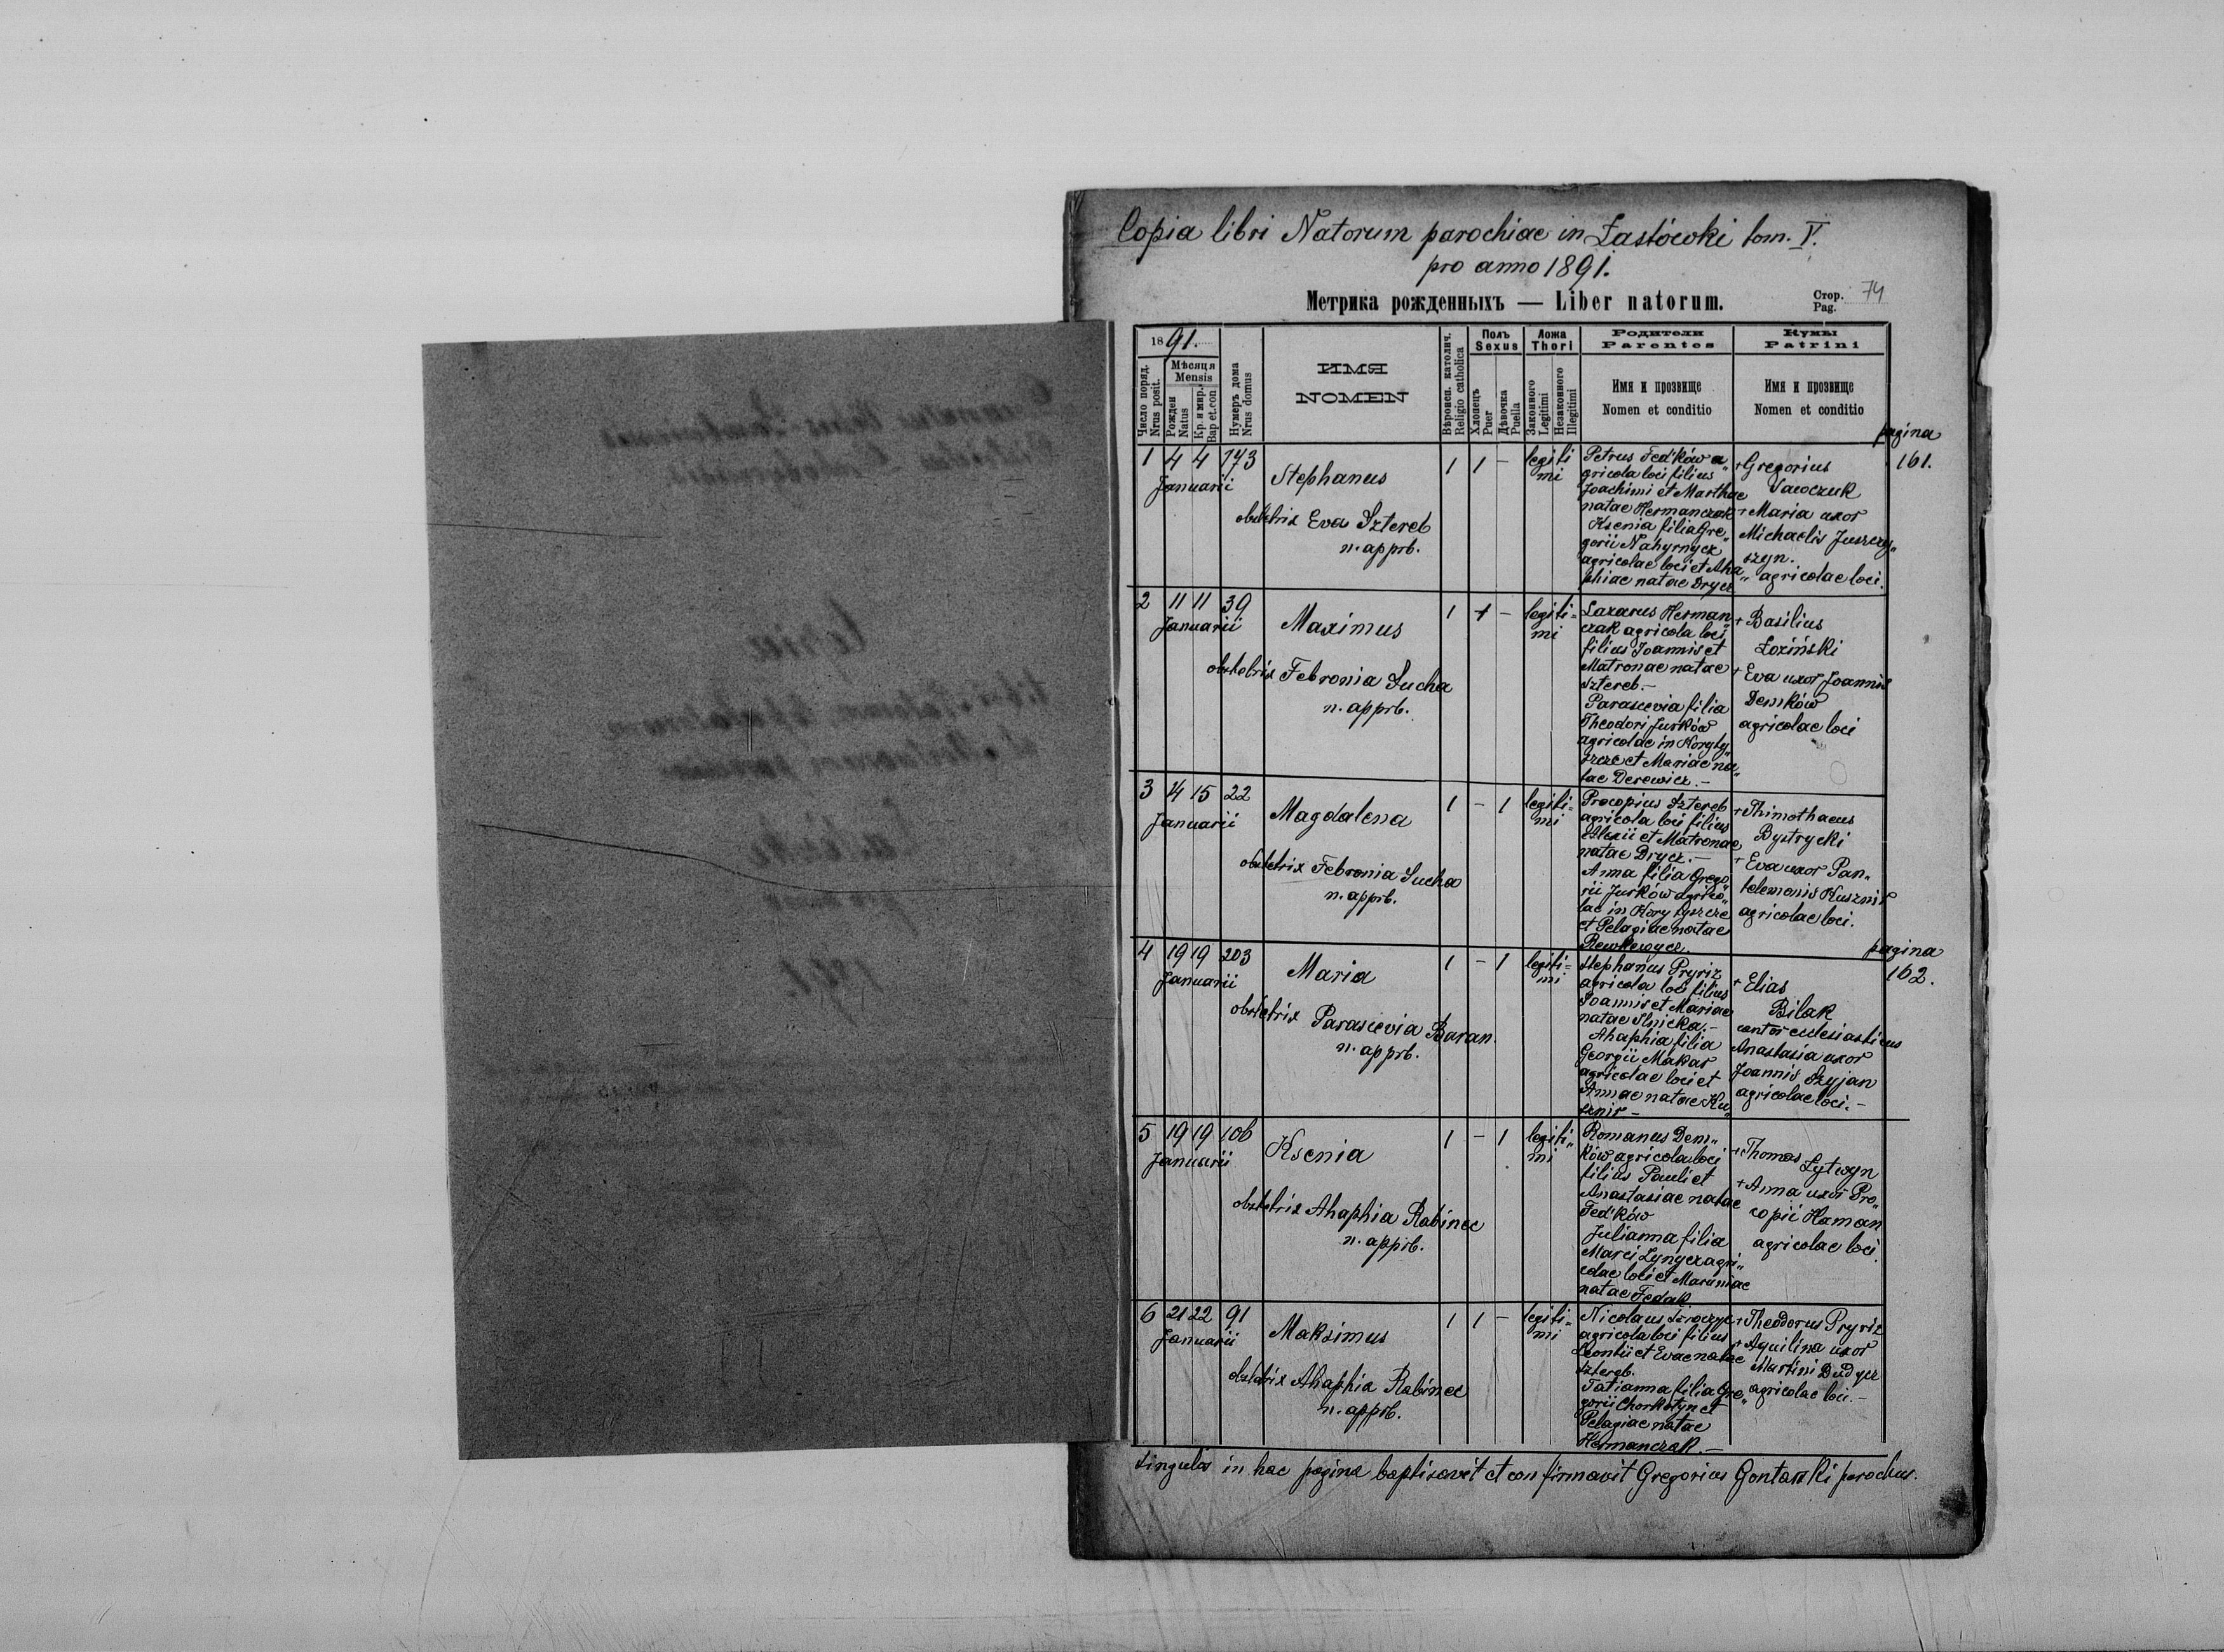 Copia libri Natorum parochiae in Łastówki tom. V.
pro anno 1891.
Метрика рожденныхъ — Liber natorum.
Стор. 74
Pag.
1891.
Число поряд.
Nrus posit.
Мѣсяця
Mensis
Рожден
Natus
Кр. и мир.
Bap et.con
Нумеръ дома
Nrus domus
ИМЯ
NOMEN
Вѣроисп. католич.
Religio catholica
Полъ
Sexus
Хлопець
Puer
Дѣвочка
Puella
Ложа
Thori
Законного
Legitimi
Незаконного
Illegitimi
Родители
Parentes
Имя и прозвище
Nomen et conditio
Кумы
Patrini
Имя и прозвище
Nomen et conditio
pagina
161.
1 4 4 173
Januarii
Stephanus
obstetrix Eva Sztereb
n. apprb.
1 1 –
legiti
mi
Petrus Fed'ków a„
gricola loci filius
Joachimi et Marthae
natae Hermanczak
Ksenia filia Gre„
gorii Nahyrnycz
agricolae loci et Aha„
phiae natae Drycz
+ Gregorius
Sawczuk
+ Maria uxor
Michaelis Juszczy„
szyn.
agricolae loci.
2 11 11 39
Januarii
Maximus
obstetrix Febronia Sucha
n. apprb.
1 1 –
legiti=
mi
Lazarus Herman„
czak agricola loci
filius Joannis et
Matronae natae
Sztereb.–
Parascevia filia
Theodori Jurków
agricolae in Koryty„
szcze et Mariae na„
tae Derewicz.–
+ Basilius
Łoziński
+ Eva uxor Joannis
Demków
agricolae loci
3 14 15 22
Januarii
Magdalena
obstetrix Febronia Sucha
n. apprb.
1 – 1
legiti=
mi
Procopius Sztereb
agricola loci filius
Alexii et Matronae
natae Drycz.–
Anna filia Grego„
rii Jurków agrico„
lae in Korytyszcze
et Pelagiae natae
+ Thimothaeus
Bystrycki
+ Eva uxor Pan„
telemonis Kusznir
agricolae loci.
pagina
162.
4 19 19 203
Januarii
Maria
obstetrix Parascevia Baran
n. apprb.
1 – 1
legiti=
mi
Stephanus Pryriz
agricola loci filius
Joannis et Mariae
natae Ilnicka.–
Ahaphia filia
Georgii Makar
agricolae loci et
Annae natae Ku„
sznir –
+ Elias
Bilak
cantor ecclesiasticus
Anastasia uxor
Joannis Szyjan
agricolae loci.–
5 19 19 106
Januarii
Ksenia
obstetrix Ahaphia Rabinec
n. apprb.
1 – 1
legiti„
mi
Romanus Dem„
ków agricola loci
filius Pauli et
Anastasiae natae
Fed'ków
Julianna filia
Marci Lynycz agri„
colae loci et Maruniae
natae Fedak
+ Thomas Lytwyn
+ Anna uxor Pro„
copii Haman
agricolae loci
6 21 22 91
Januarii
Maksimus
obstetrix Ahaphia Rabinec
n. apprb.
1 1 –
legiti=
mi
Nicolaus
agricola loci filius
Leontii et Evae natae
Sztereb.
Tatianna filia Gre„
gorii Chorkotyn et
Pelagiae natae
Hermanczak.–
+ Theodorus Pryriz
+ Aquilina uxor
Martini Dudycz
agricolae loci.–
Singulos in hac pagina baptisavit et confirmavit Gregorius Gontarski parochus.